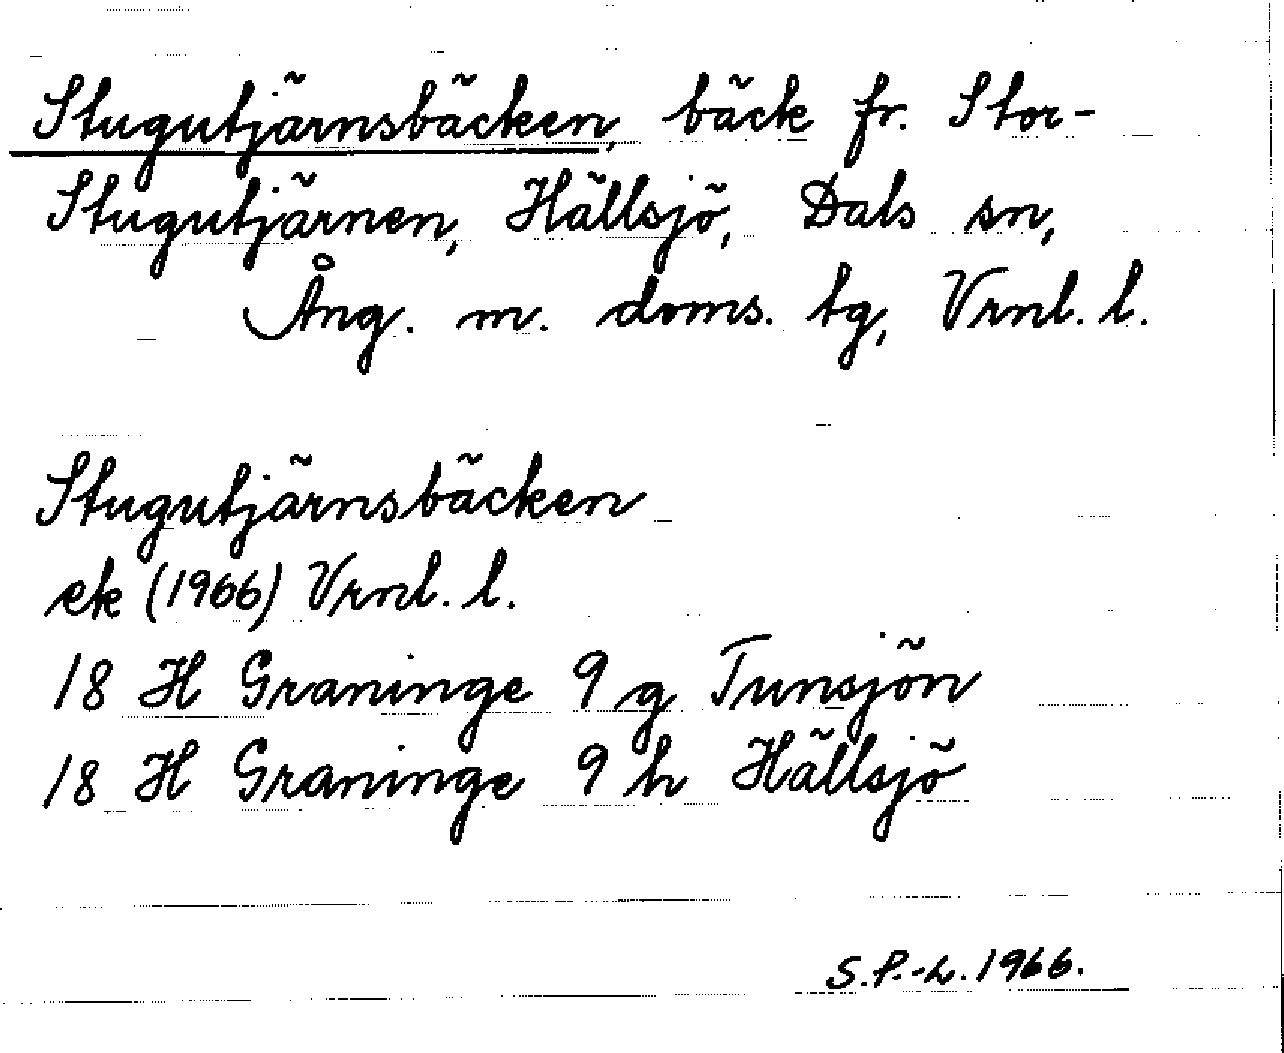 Stugutjärnsbäcken, bäck fr. Stor-
Stugutjärnen, Hällsjö, Dals sn,
Ång. m. doms. tg, Vrnl. l.
Stugutjärnsbäcken
ek (1966) Vrnl. l.
18 H Graninge 9 g Tunsjön
18 H Graninge 9 h Hällsjö
S.P.-L. 1966.